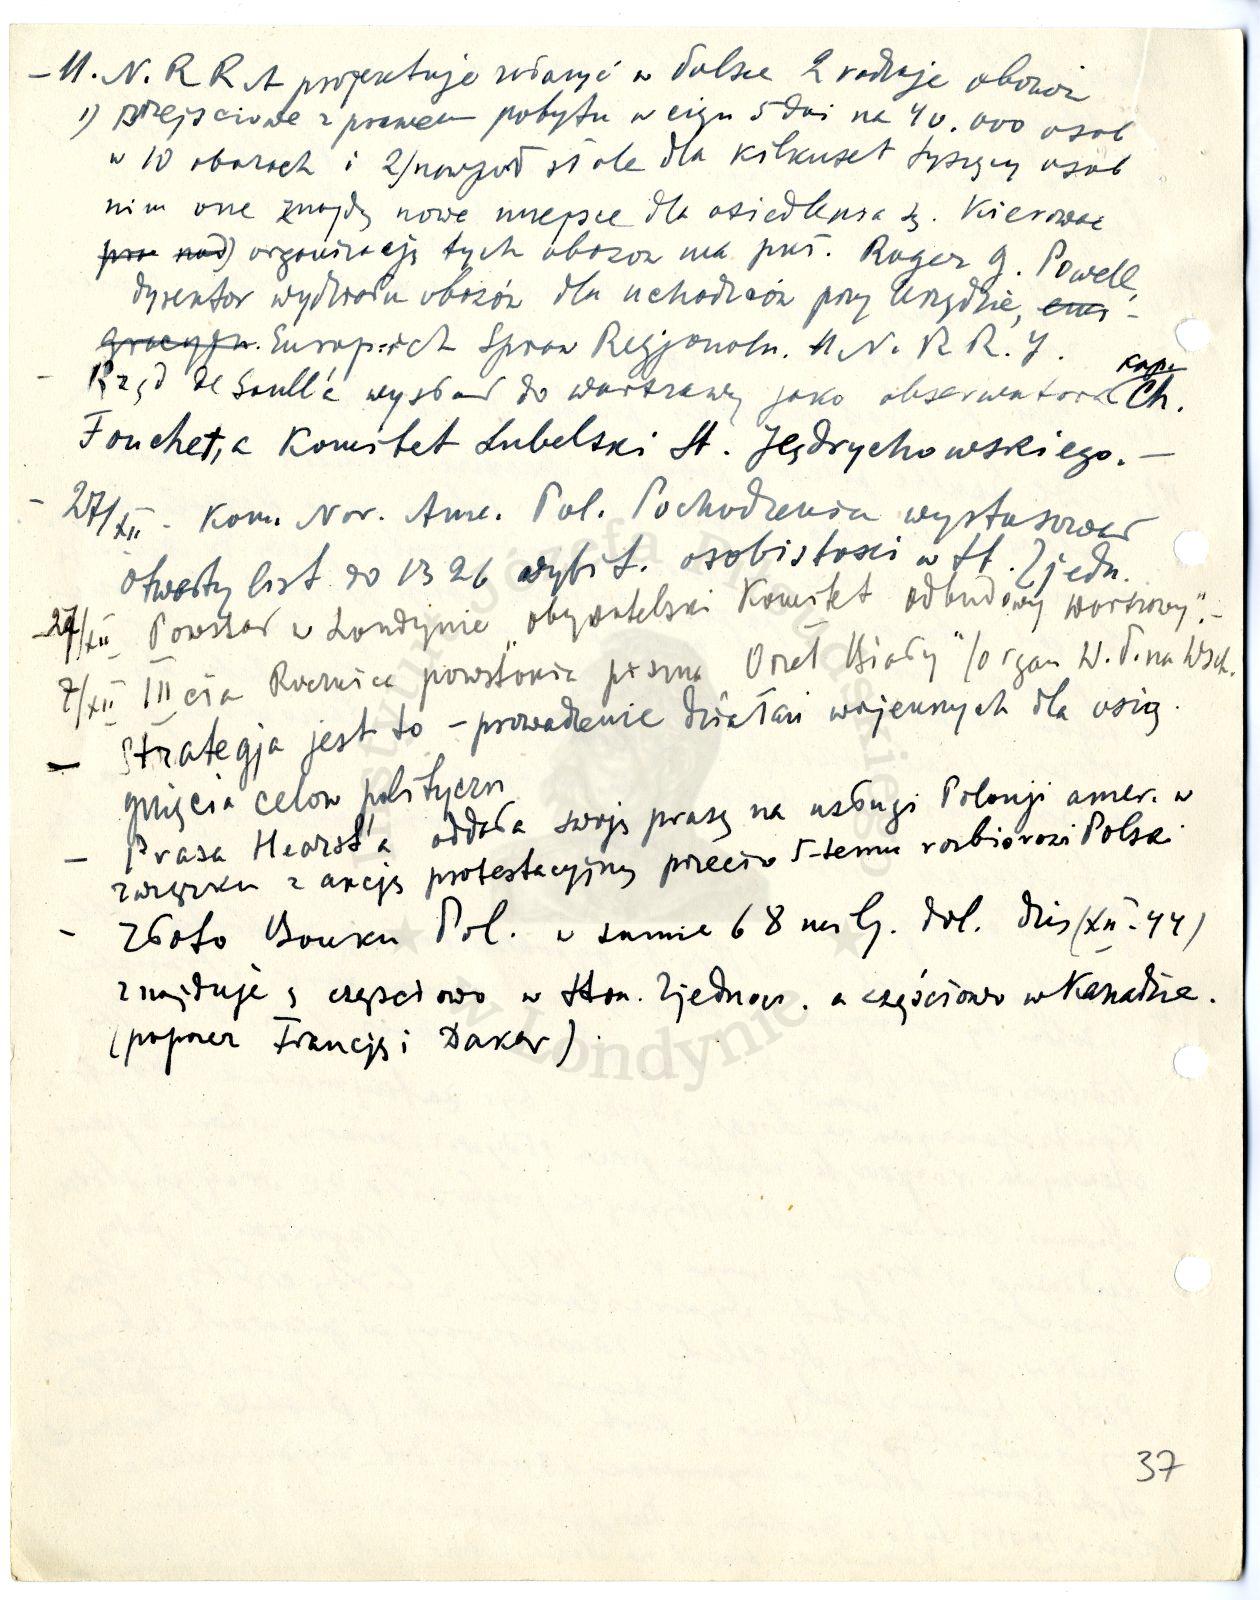 - U.N.R.R.A projektuje założyć w Polsce 2 rodzaje obozów
1) przejściowe z prawem pobytu w ciągu 5 dni na 40.000 osób
w 10 obozach i 2) nawpół stałe dla kilkuset tysięcy osób
nim one znajdą nowe miejsce dla osiedlenia się. Kierować
prac nad) organizacją tych obozów ma płk. Roger G. Powell,
dyrektor wydziału obozów dla uchodźców przy Urzędzie, emi-
gracyjn. Europ-ich Spraw Regjonaln. U.N.R.R.A.
- Rząd de Gaull'a wysłał do Warszawy jako obserwatora kapt. Ch.
Fouchet, a Komitet Lubelski St. Jędrychowskiego. -
- 27/XII - Kom. Nar. Ame. Pol. Pochodzenia wystosował
otwarty list do 1326 wybit. osobistości w St. Zjedn.
- 29/XII Powstał w Londynie „obywatelski Komitet odbudowy Warszawy". -
7/XII III cia Rocznica powstania pisma Orzeł Biały" / organ W.P. na Wsch.
- Strategja jest to - prowadzenie działań wojennych dla osią-
gnięcia celów polityczn
- Prasa Hearst'a oddała swoją prasę na usługi Polonji amer. w
związku z akcją protestacyjną przeciw 5-temu rozbiorowi Polski
- Złoto Banku Pol. w sumie 68 milj. dol. dziś (XII-44)
znajduje się częściowo w Stan. Zjednocz. a częściowo w Kanadzie.
(poprzez Francję i Dakar).
37
Instytut Józefa Piłsudskiego
w Londynie